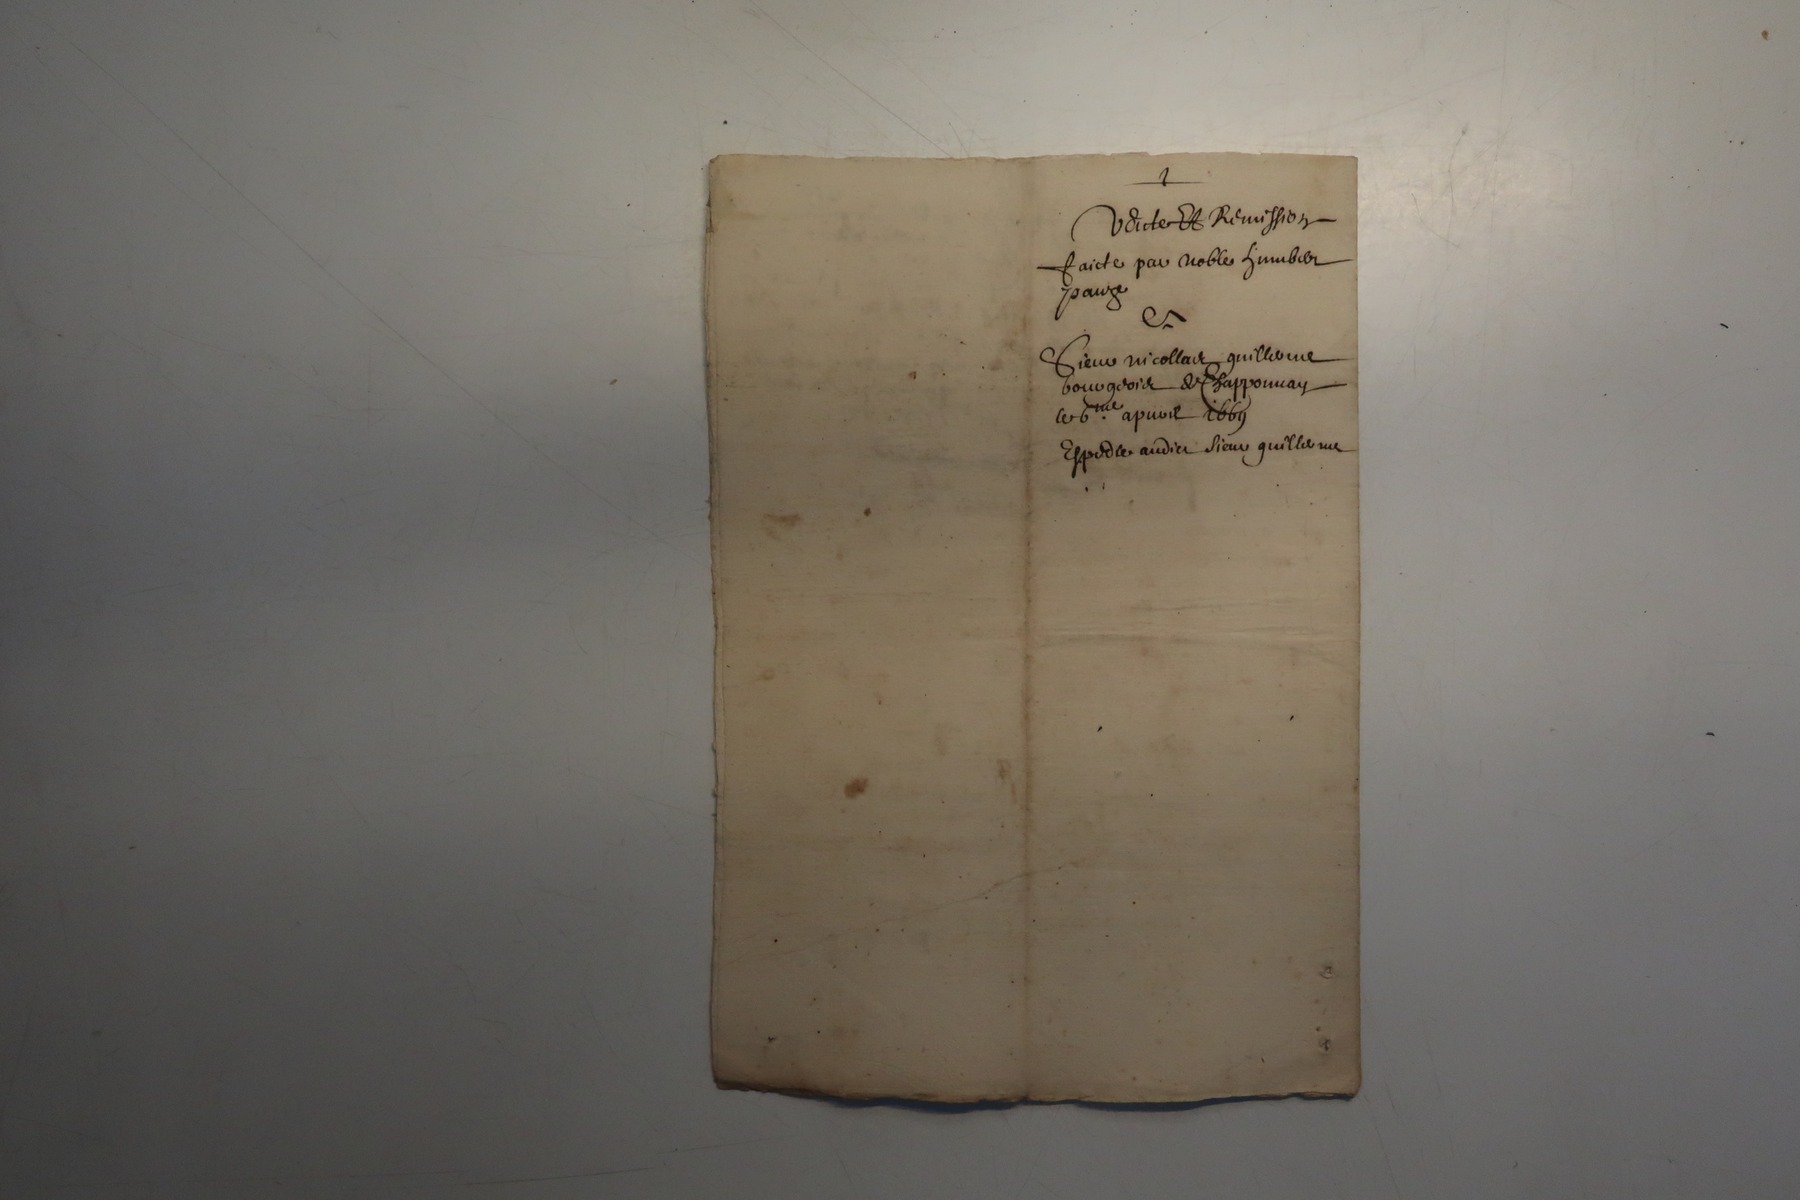 1
Vente Et Remission
faicte par noble humbert
pauze
Et
Sieur nicollas guillerme
bourgeois de Chapponnay
le 6me apvril 1669
Expedie audict sieur guillerme